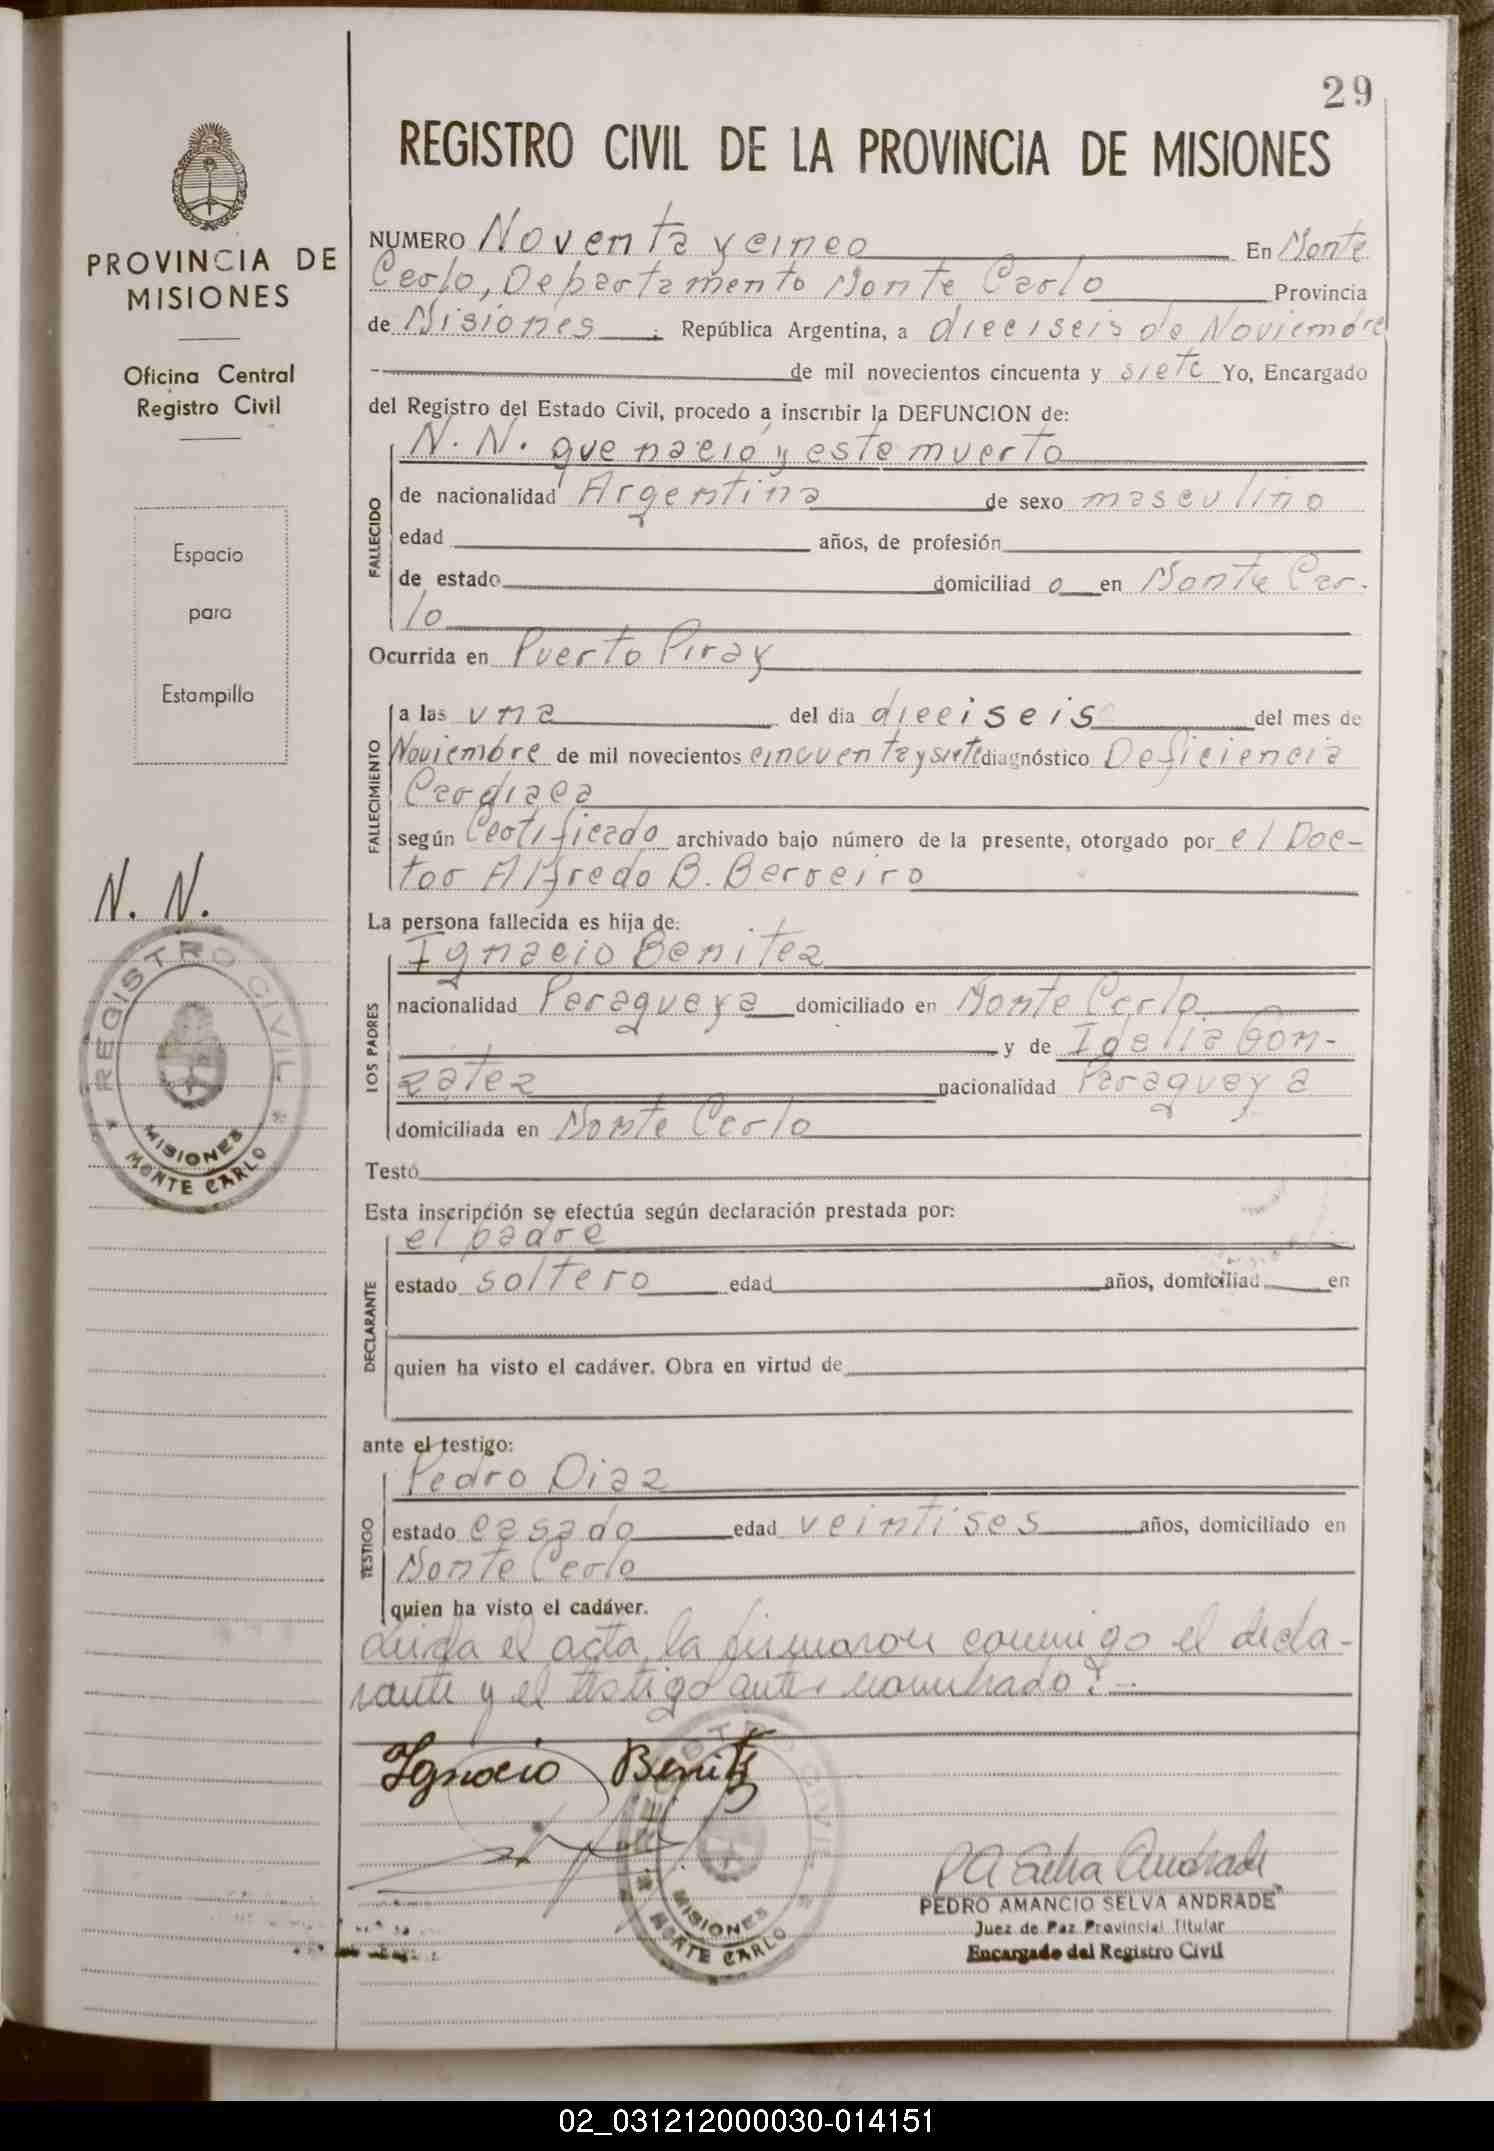 29
REGISTRO CIVIL DE LA PROVINCIA DE MISIONES
PROVINCIA DE
MISIONES
Oficina Central
Registro Civil
Espacio
para
Estampilla
N. N.
REGISTRO CIVIL
MISIONES
MONTE CARLO
NUMERO Noventa y cinco En Monte
Carlo, Departamento Monte Carlo Provincia
de Misiones ; República Argentina, a dieciseis de Noviembre
de mil novecientos cincuenta y siete Yo, Encargado
del Registro del Estado Civil, procedo a inscribir la DEFUNCION de:
FALLECIDO
N. N. que nació y este muerto
de nacionalidad Argentina de sexo masculino
edad años, de profesión
de estado domiciliad o en Monte Car-
lo
Ocurrida en Puerto Piray
FALLECIMIENTO
a las una del dia dieciseis del mes de
Noviembre de mil novecientos cincuenta y siete diagnóstico Deficiencia
Cardiaca
según Certificado archivado bajo número de la presente, otorgado por el Doc-
tor Alfredo B. Berreiro
La persona fallecida es hija de:
LOS PADRES
Ignacio Benitez
nacionalidad Paraguaya domiciliado en Monte Carlo
y de Idelia Gon-
zález nacionalidad Paraguaya
domiciliada en Monte Carlo
Testó
Esta inscripción se efectúa según declaración prestada por:
DECLARANTE
el padre
estado soltero edad años, domiciliad en
quien ha visto el cadáver. Obra en virtud de
ante el testigo:
TESTIGO
Pedro Diaz
estado casado edad veintises años, domiciliado en
Monte Carlo
quien ha visto el cadáver.
Leida el acta, la firmaron conmigo el decla-
rante y el testigo antes nombrado.-
Ignacio Benitez
REGISTRO CIVIL
MISIONES
MONTE CARLO
P A Selva Andrade
PEDRO AMANCIO SELVA ANDRADE
Juez de Paz Provincial Titular
Encargado del Registro Civil
02_031212000030-014151